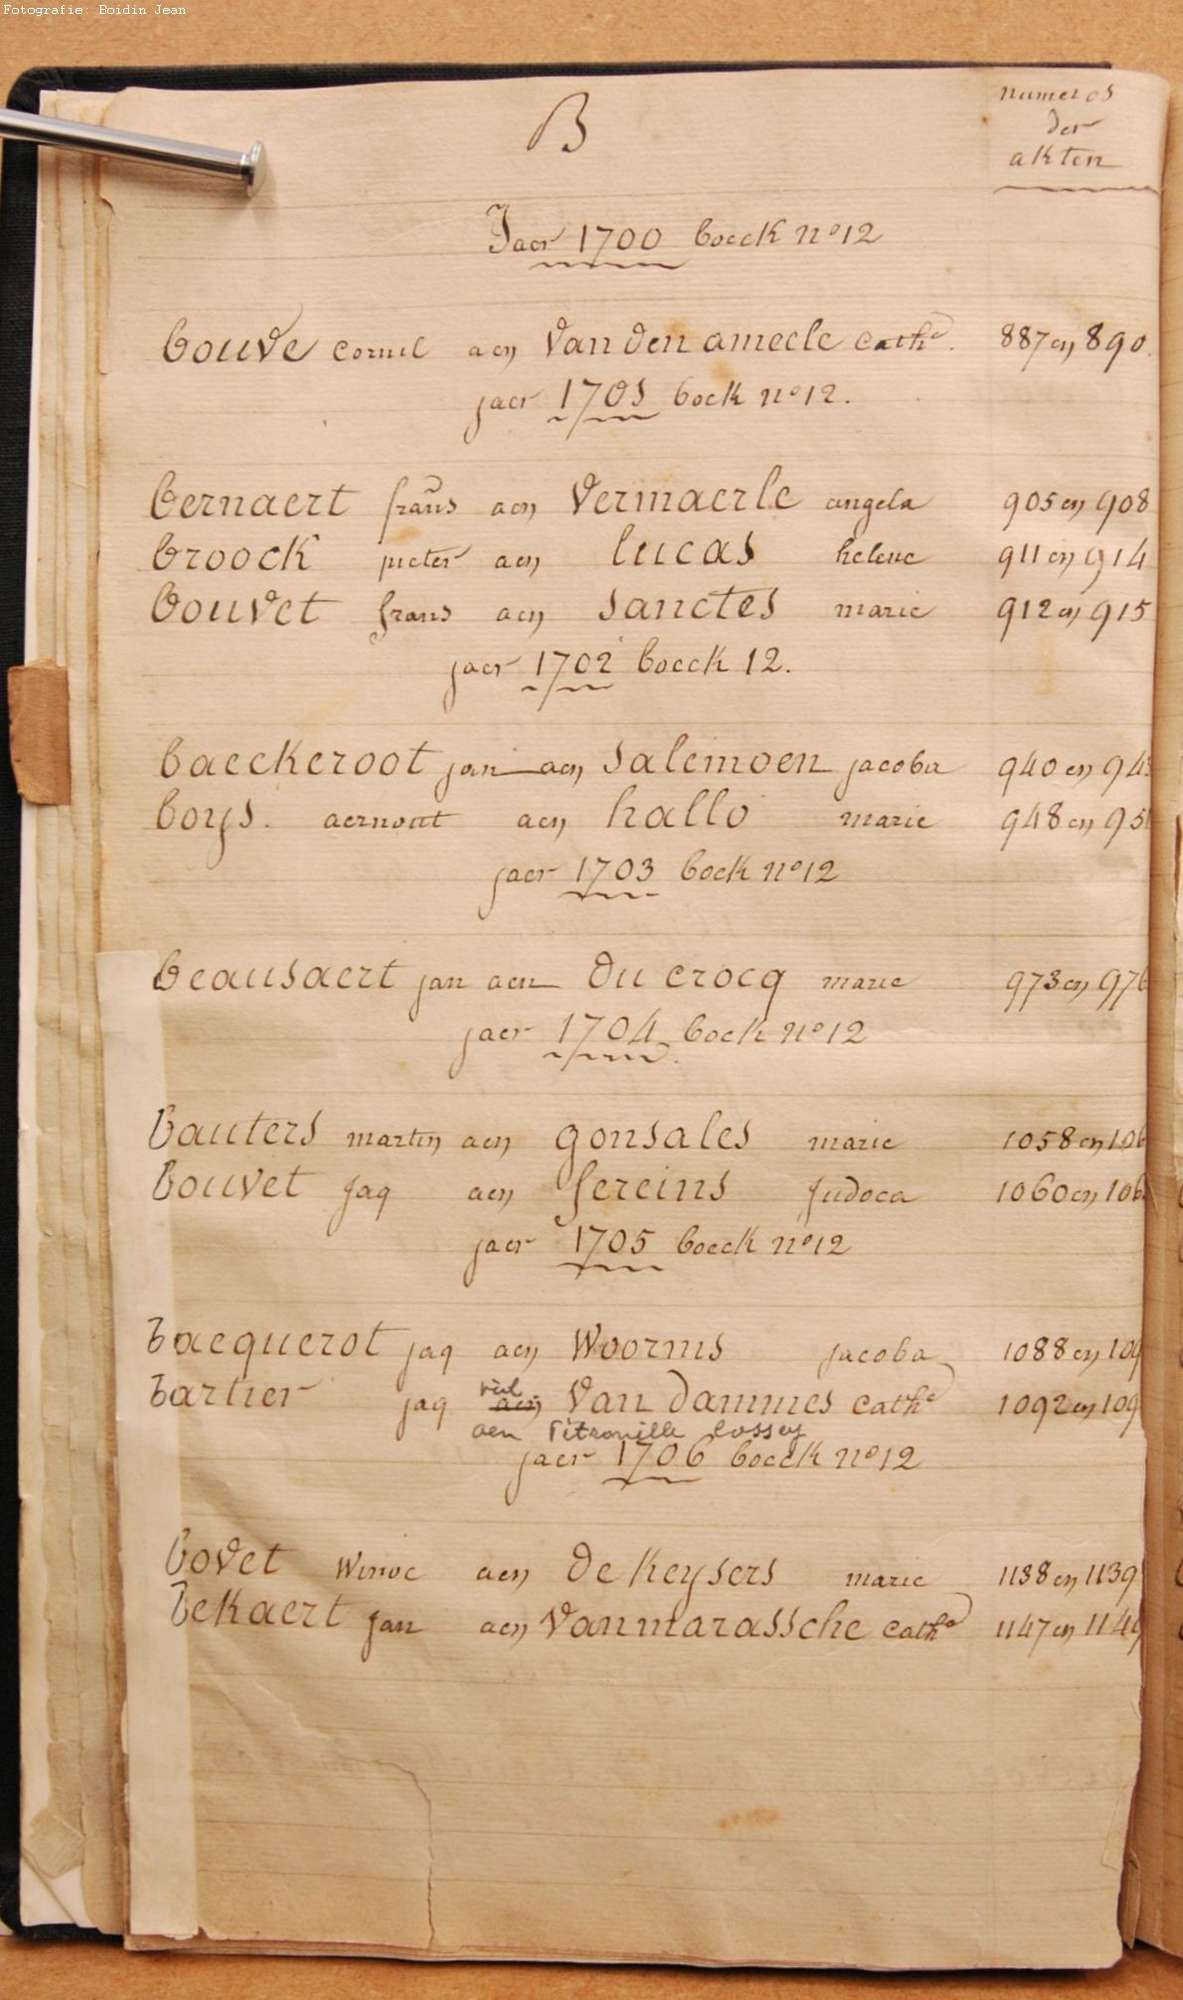 Fotografie: Boidin Jean
B
numeros
der
akten
Jaer 1700 boeck nº 12
bouve cornil aen Van den ameele cathª. 887 en 890.
jaer 1701 boek nº 12.
bernaert frans aen Vermaerle angela 905 en 908
broock pieter aen lucas helene 911 en 914
bouvet frans aen sanctes marie 912 en 915
jaer 1702 boeck 12.
baeckeroot jan aen salemoen jacoba 940 en 943
boys. aernout aen hallo marie 948 en 951
jaer 1703 boek nº 12
beausaert jan aen du crocq marie 973 en 976
jaer 1704 boek nº 12
bauters martin aen gonsales marie 1058 en 106
bouvet jaq aen sereins judoca 1060 en 106
jaer 1705 boeck nº 12
bacquerot jaq aen Woorms jacoba 1088 en 109
bartier jaq aen Van dammes cathª 1092 en 109
aen Pétronille cossey
jaer 1706 boeck nº 12
bovet Winoc aen de Keysers marie 1138 en 1139
beKaert jan aen Vanmarassche cathª 1147 en 1149